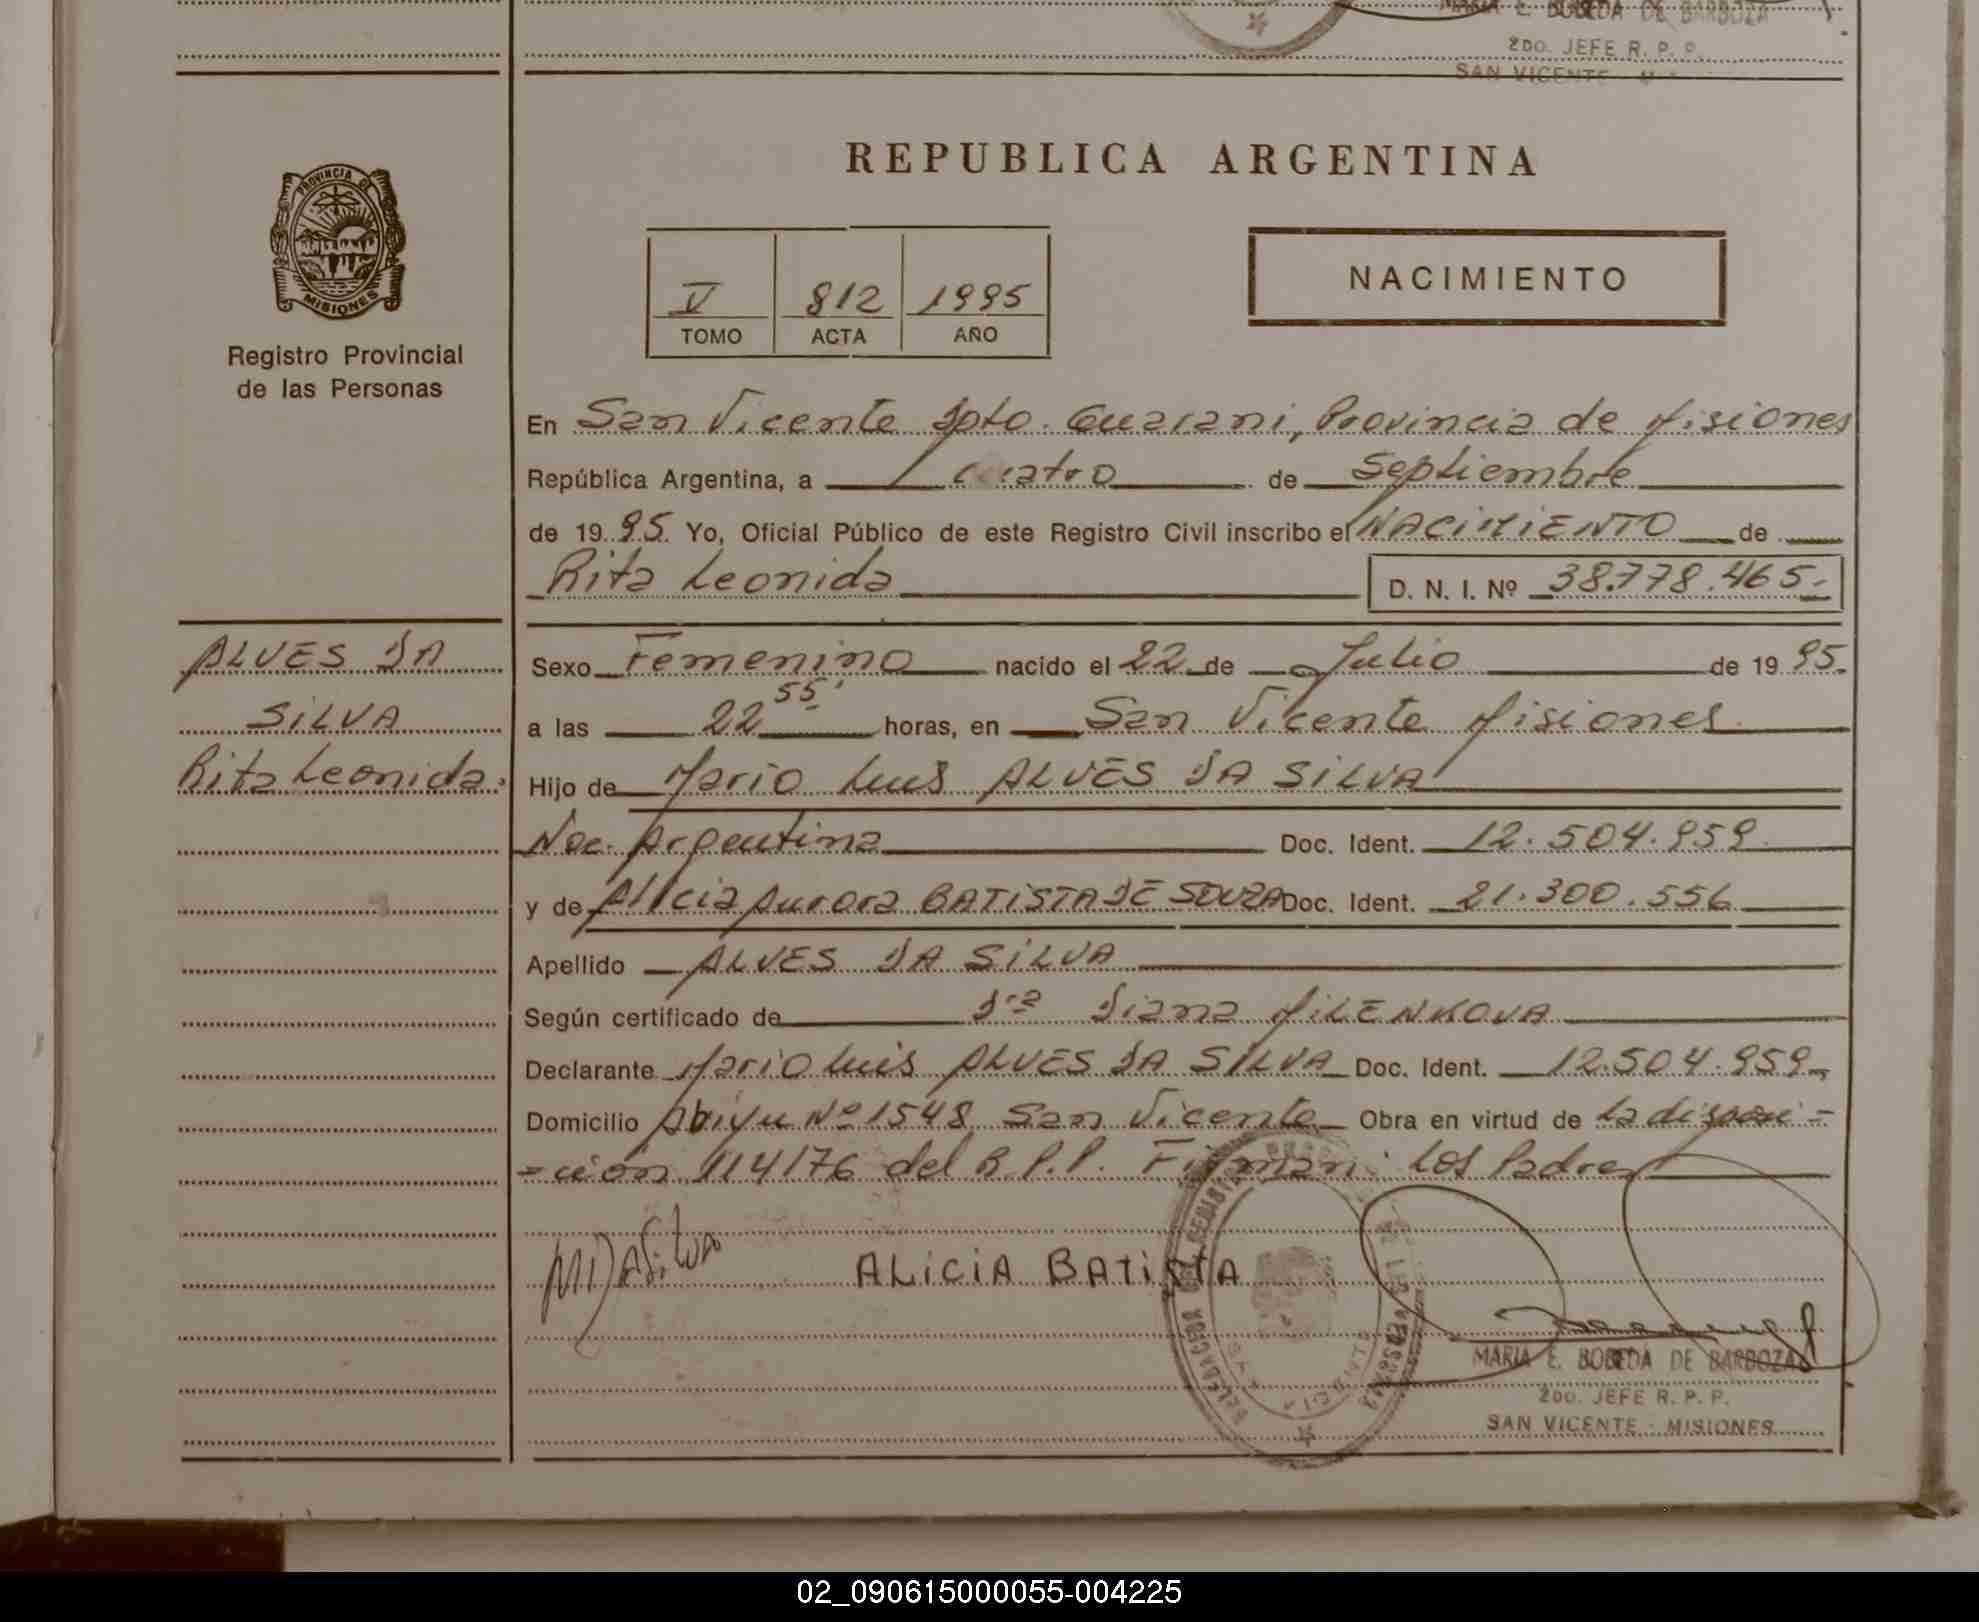 MARIA E. BOBEDA DE BARBOZA
2DO. JEFE R. P. P.
SAN VICENTE
REPUBLICA ARGENTINA
PROVINCIA DE
MISIONES
Registro Provincial
de las Personas
V 812 1995
TOMO ACTA AÑO
NACIMIENTO
En San Vicente Dpto. Guarani, Provincia de Misiones
República Argentina, a cuatro de Septiembre
de 1995 Yo, Oficial Público de este Registro Civil inscribo el NACIMIENTO de
Rita Leonida D. N. I. Nº 38.778.465.-
ALVES DA
SILVA
Rita Leonida.
Sexo Femenino nacido el 22 de Julio de 1995.
a las 22 55' horas, en San Vicente Misiones
Hijo de Mario Luis ALVES DA SILVA
Nac. Argentina Doc. Ident. 12.504.959
y de Alicia Aurora BATISTA DE SOUZA Doc. Ident. 21.300.556
Apellido ALVES DA SILVA
Según certificado de Dra Diana MILENKOVA
Declarante Mario Luis ALVES DA SILVA Doc. Ident. 12.504.959
Domicilio Abiyu Nº 1548 San Vicente Obra en virtud de la disposi=
=ción 114/76 del R.P.P. Firman: Los Padres
ALiCiA BATiStA
MARIA E. BOBEDA DE BARBOZA
2DO. JEFE R. P. P.
SAN VICENTE - MISIONES
02_090615000055-004225